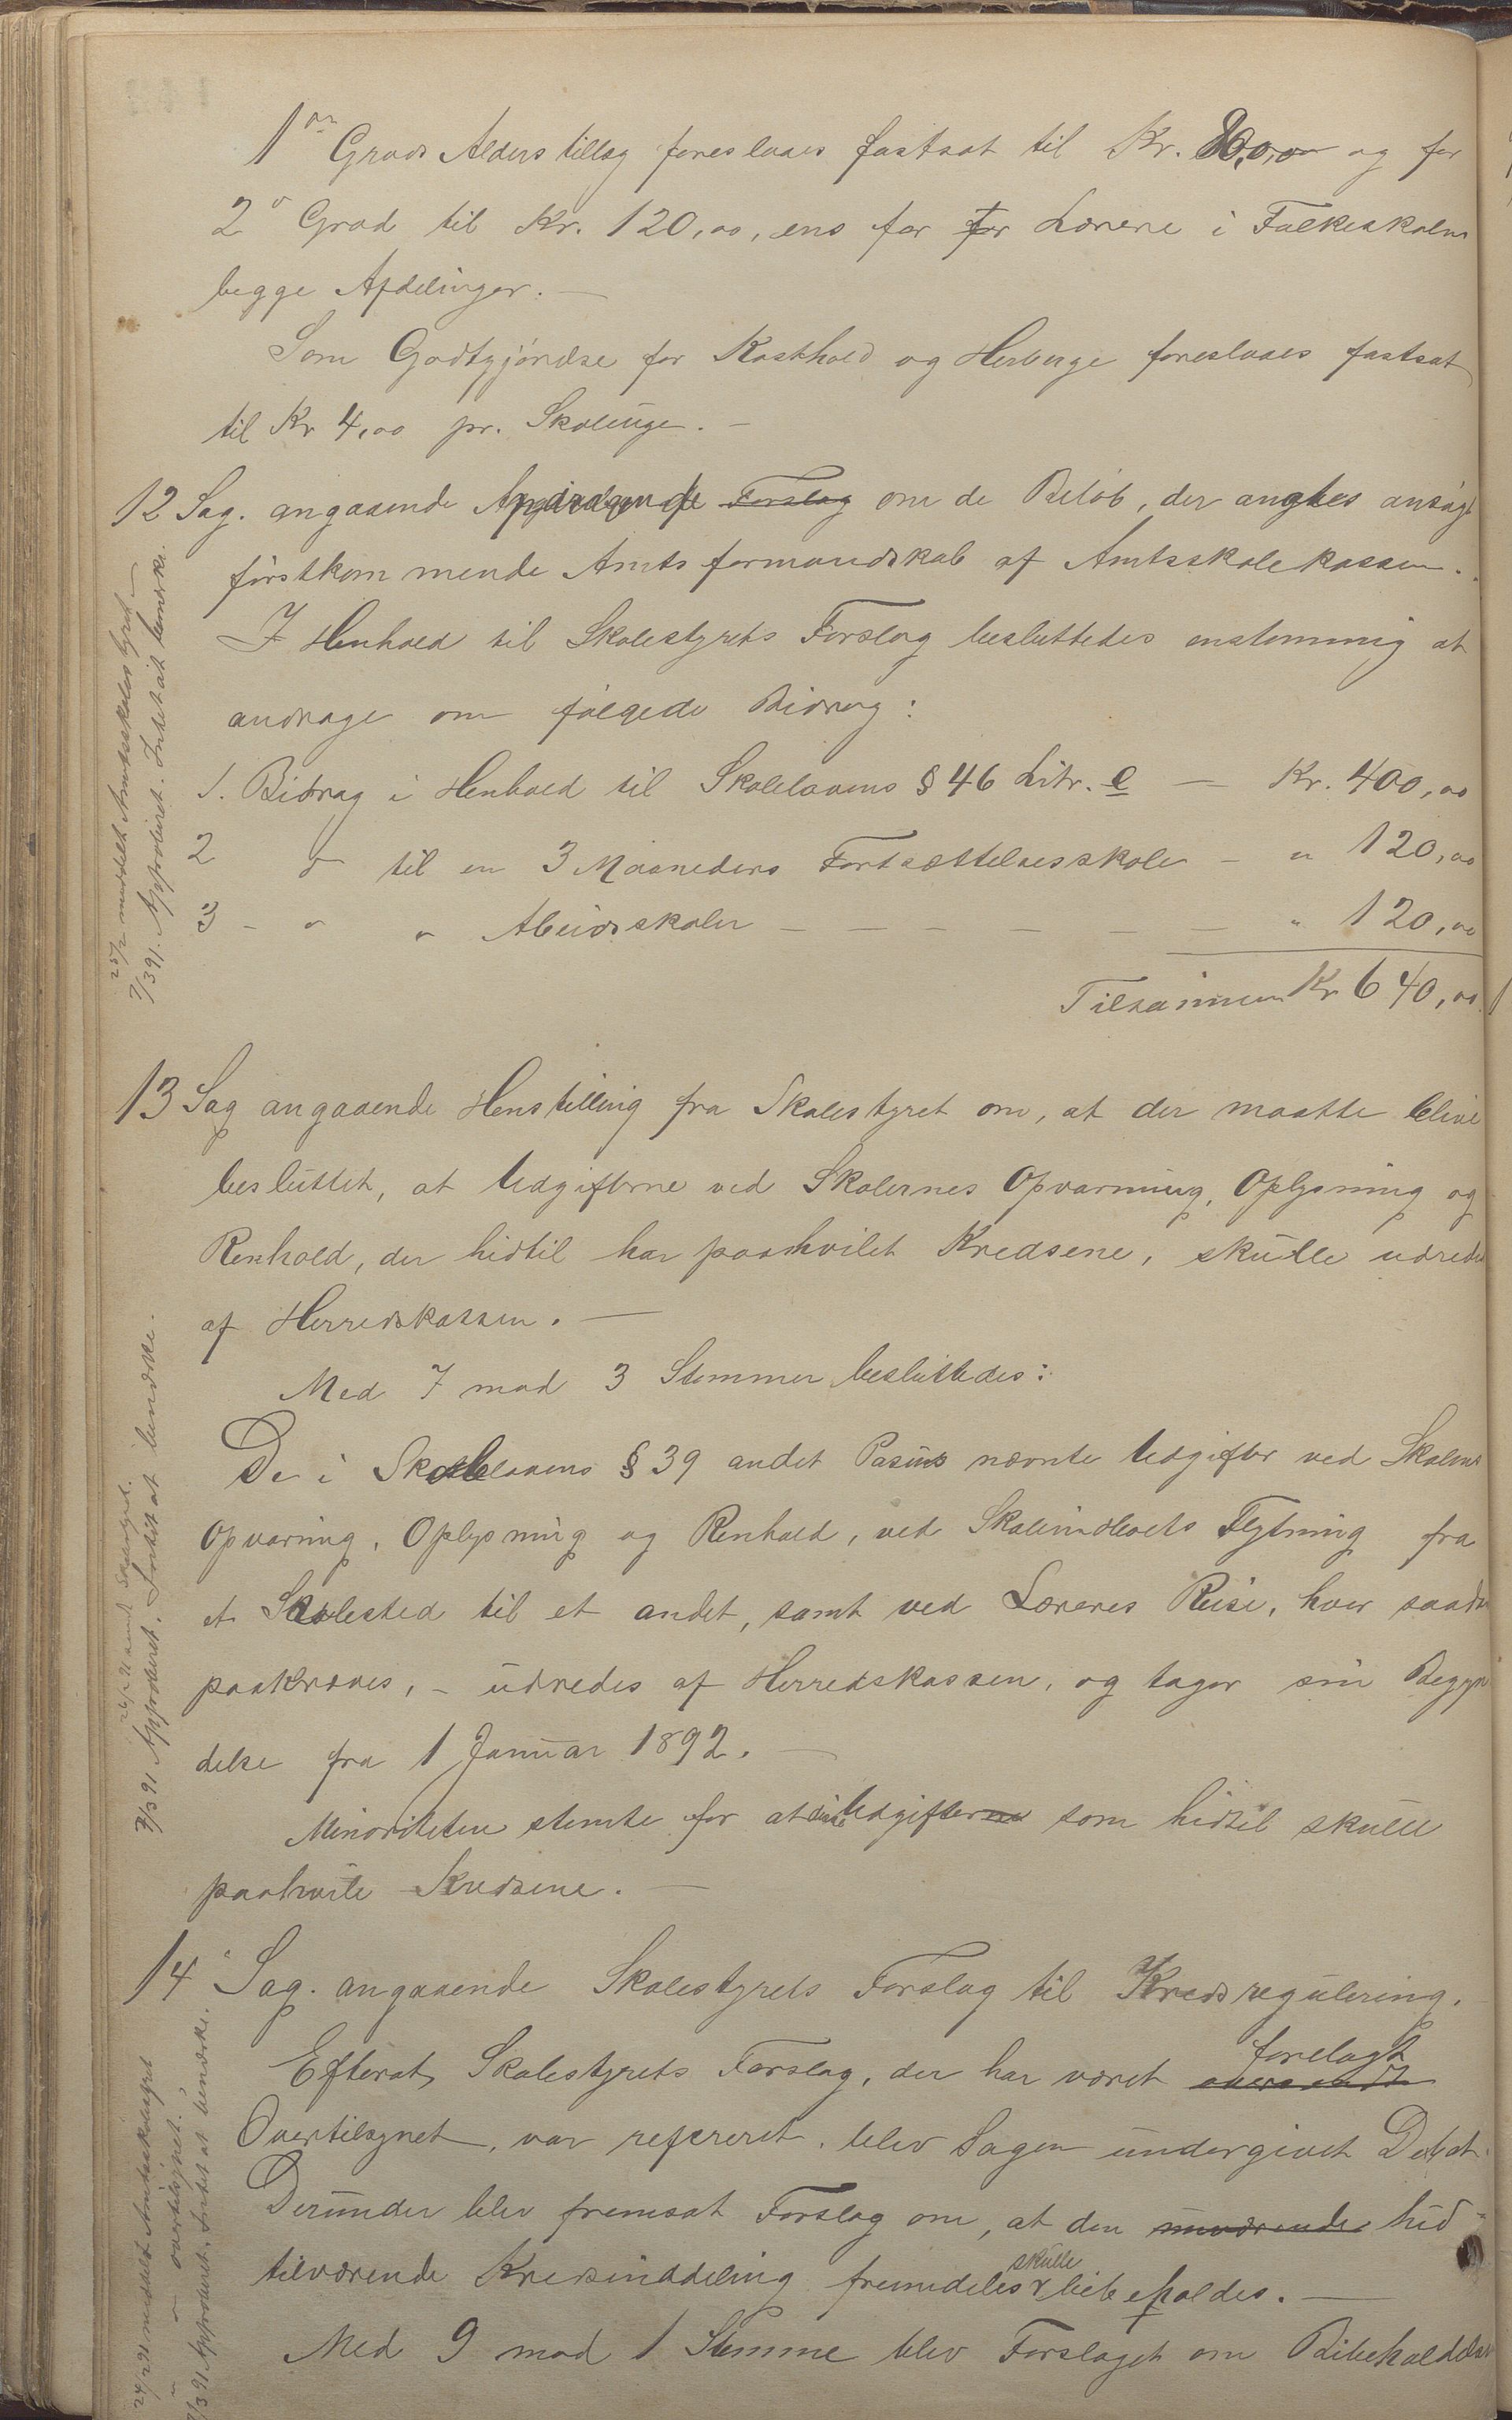 1ste Grads Alderstillæg foreslaaes fastsat til Kr. 80,00 og for
2 Grad til Kr. 120,00, ens for for Lærere i Folkeskolens
begge Afdelinger. —
Som Godtgjörelse for Kosthold og Herberge foreslaaes fastsat
til Kr 4,00 pr. Skoleuge. —
12 Sag. angaaende Andragende Forslag om de Belöb, der angtes ansögt
förstkommende Amtsformandskab af Amtsskolekassen.
I Henhold til Skolestyrets Forslag besluttedes enstemmig at
andrage om fölgede Bidrag:
1. Bidrag i Henhold til Skolelovens § 46 Litr. e — Kr. 400,00
2 " til en 3 Maaneders Fortsættelsesskole — " 120,00
3 - " " Abeidsskoler — — — — — — " 120,00
Tilsammen Kr 640,00
25/2 meddelt Amtsskolestyret —
7/3 91. Approberet. Intet at bemerke.
13 Sag angaaende Henstilling fra Skolestyret om, at der maatte blive
besluttet, at Udgifterne ved Skolernes Opvarming, Oplysning og
Renhold, der hidtil har paahvilet Kredsene, skulle udredes
af Herredskassen. —
Med 7 mod 3 Stemmer besluttedes:
De i Skolelovens § 39 andet Pasius nævnte Udgifter ved Skolens
Opvaring, Oplysning og Renhold, ved Skoleindboets Flytning fra
et Skolested til et andet, samt ved Læreres Reise, hvor saadan
paakræves, — udredes af Herredskassen, og tager sin Begyn
delse fra 1 Januar 1892. —
Minoriteten stemte for at Udgifterne som hidtil skulle
paahvile Kredsene. —
7/3 91 Approberet. Intet at bemærke.
14 Sag. angaaende Skolestyrets Forslag til Kredsregulering.
Efterat Skolestyrets Forslag, der har været oversendt forelagt
Overtilsynet, var refereret, blev Sagen undergivet Debat.
Derunder blev fremsat Forslag om, at den nuværende hid-
tilværende Kredsinddeling fremdeles skulle bibeholdes. —
Med 9 mod 1 Stemme blev Forslaget om Bibeholdelse
24/2 91 meddelt Amtsskolestyret
" — " overtilsynet.
7/3 91 Approberet. Intet at bemærke.